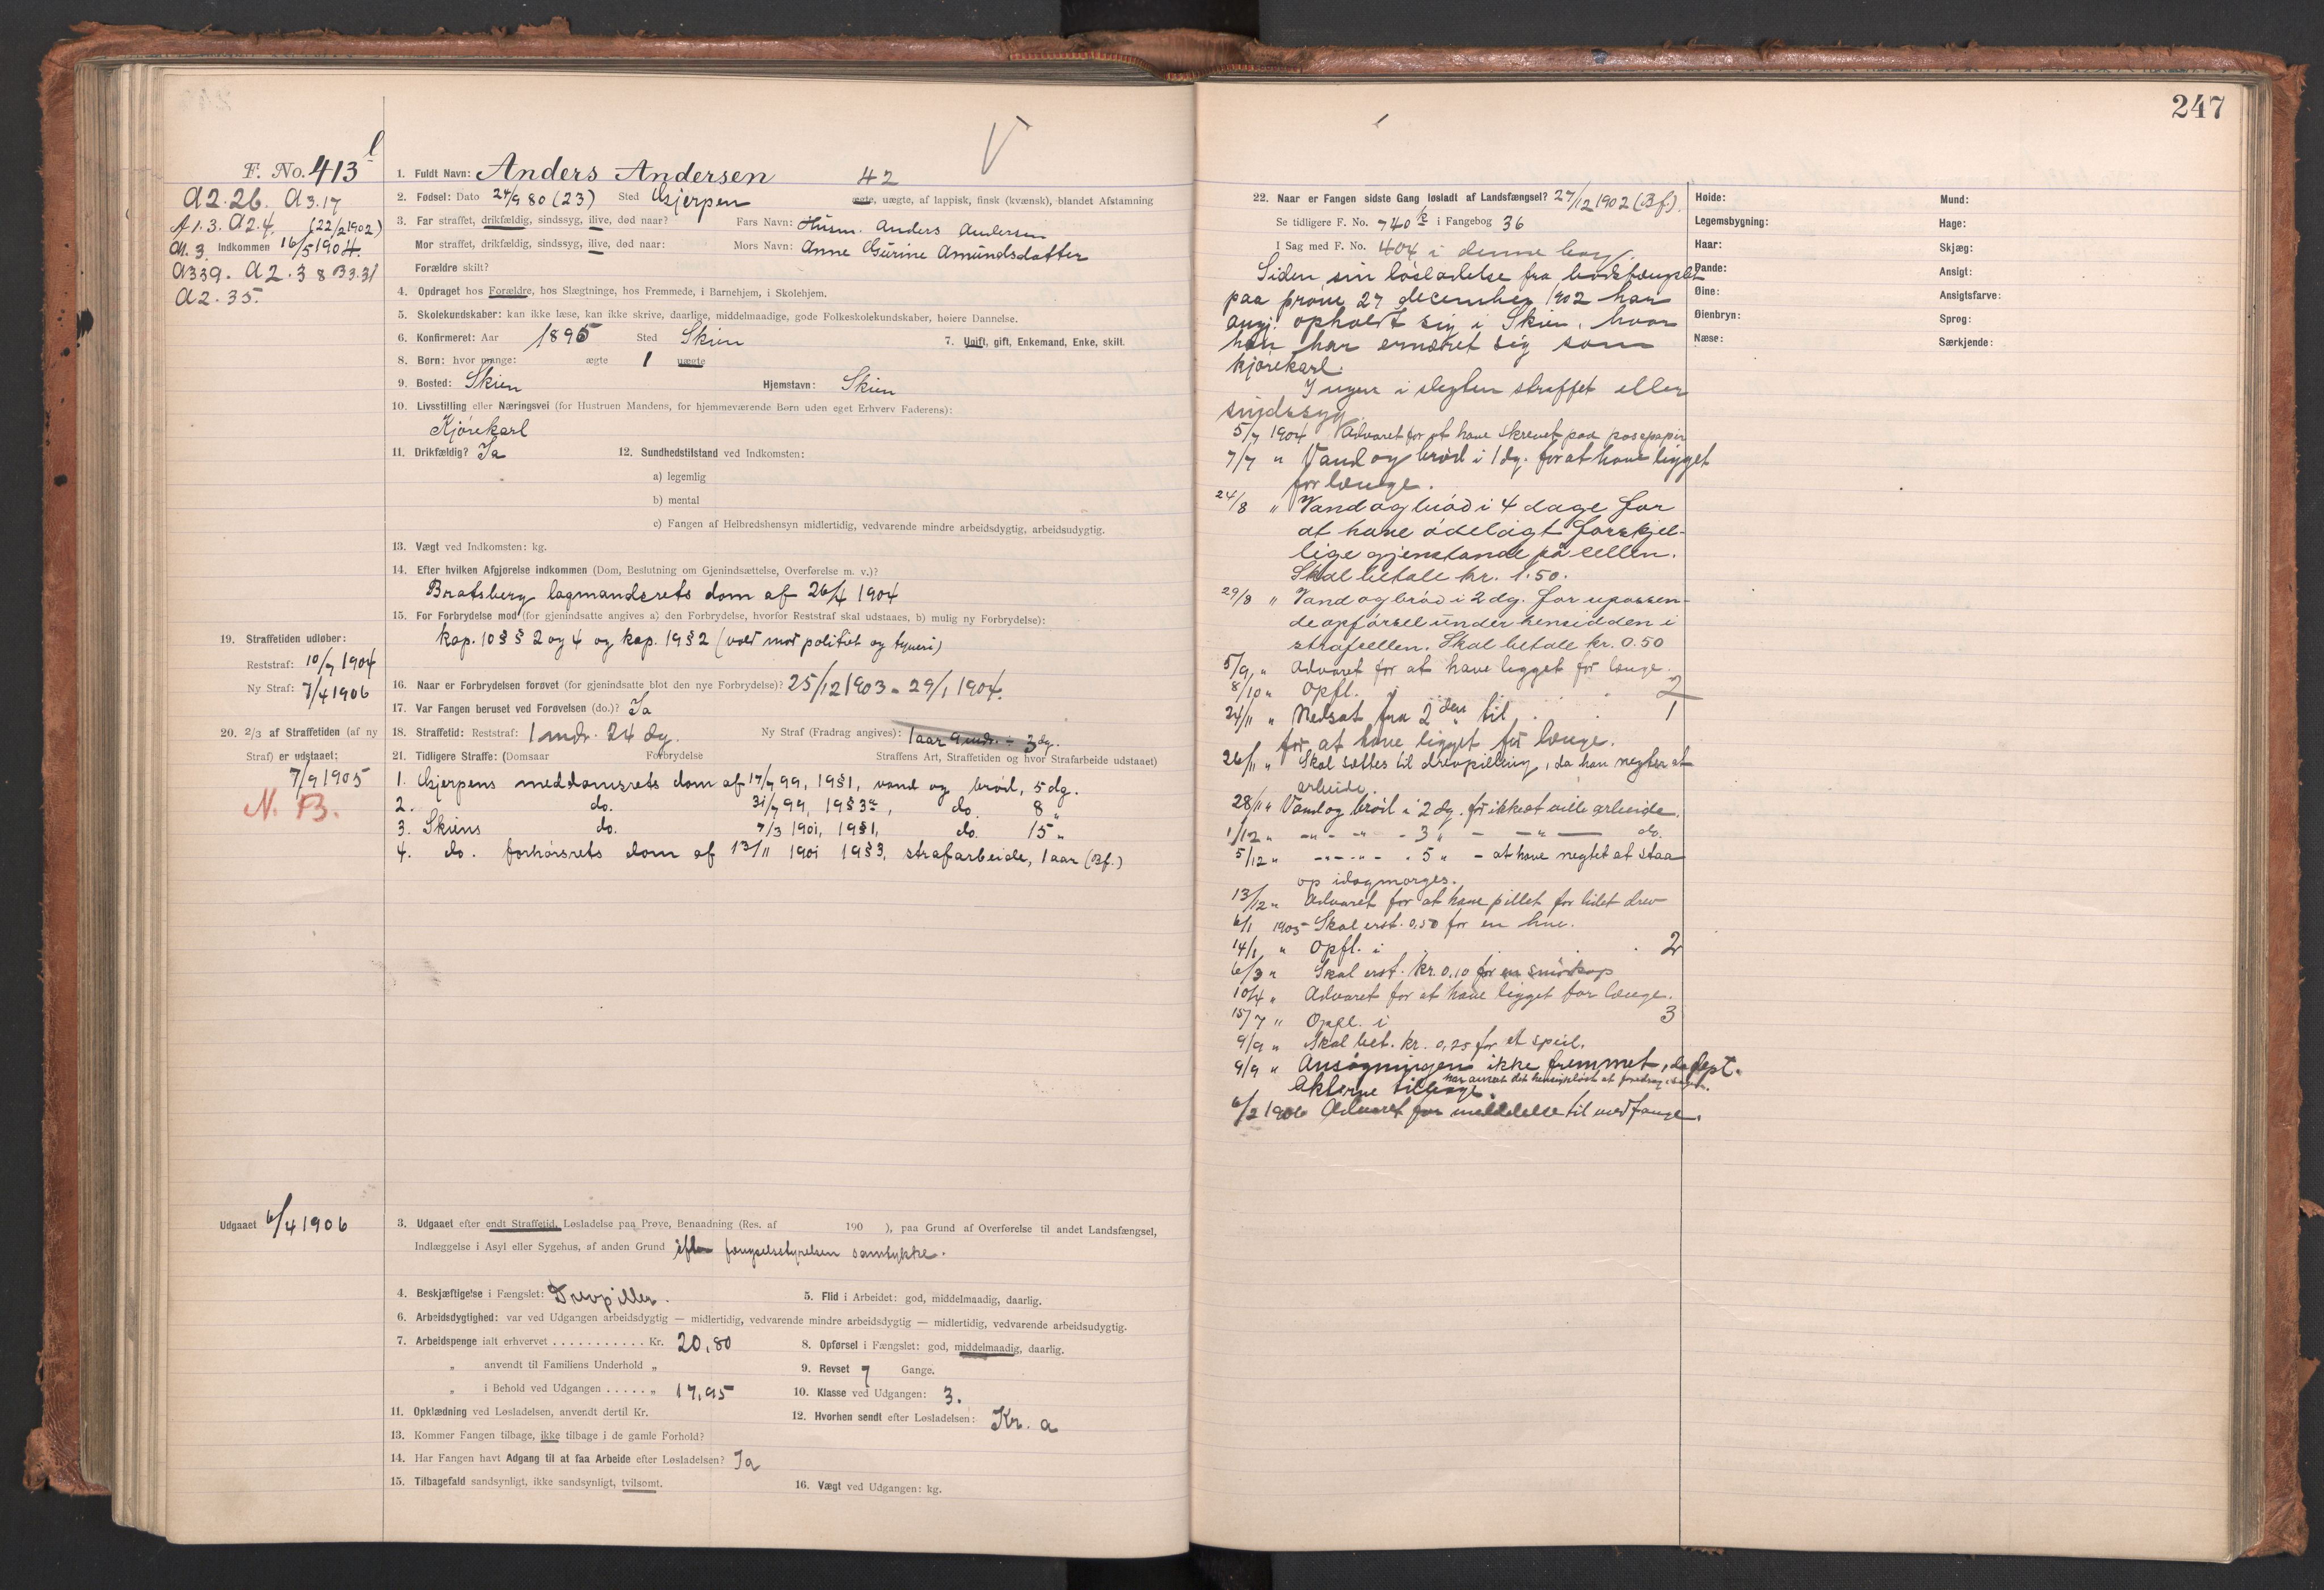 247
F. No. 413 l
A2.26. A3.17
A1.3. A2.4. (22/2 1902)
A1.3. Indkommen 16/5 1904.
A339. A2.38 B3.31
A2.35.
1. Fuldt Navn: Anders Andersen 42
2. Fødsel: Dato 24/9 80 (23) Sted Gjerpen ægte, uægte, af lappisk, finsk (kvænsk), blandet Afstamning
3. Far straffet, drikfældig, sindssyg, ilive, død naar? Fars Navn: Husm. Anders Andersen
Mor straffet, drikfældig, sindssyg, ilive, død naar: Mors Navn: Anne Gurine Amundsdatter
Forældre skilt?
4. Opdraget hos Forældre, hos Slægtninge, hos Fremmede, i Barnehjem, i Skolehjem.
5. Skolekundskaber: kan ikke læse, kan ikke skrive, daarlige, middelmaadige, gode Folkeskolekundskaber, høiere Dannelse.
6. Konfirmeret: Aar 1895 Sted Skien 7. Ugift, gift, Enkemand, Enke, skilt.
8. Børn: hvor mange: ægte 1 uægte
9. Bosted: Skien Hjemstavn: Skien
10. Livsstilling eller Næringsvei (for Hustruen Mandens, for hjemmeværende Børn uden eget Erhverv Faderens):
Kjørekarl
11. Drikfældig? Ja 12. Sundhedstilstand ved Indkomsten:
a) legemlig
b) mental
c) Fangen af Helbredshensyn midlertidig, vedvarende mindre arbeidsdygtig, arbeidsudygtig.
13. Vægt ved Indkomsten: kg.
14. Efter hvilken Afgjørelse indkommen (Dom, Beslutning om Gjenindsættelse, Overførelse m. v.)?
Bratsberg lagmandsrets dom af 26/4 1904
15. For Forbrydelse mod (for gjenindsatte angives a) den Forbrydelse, hvorfor Reststraf skal udstaaes, b) mulig ny Forbrydelse):
kap. 10 § § 2 og 4 og kap. 19 § 2 (vold mod politiet og tyveri)
19. Straffetiden udløber:
Reststraf: 10/7 1904
Ny Straf: 7/4 1906
16. Naar er Forbrydelsen forøvet (for gjenindsatte blot den nye Forbrydelse)? 25/12 1903 - 29/1 1904.
17. Var Fangen beruset ved Forøvelsen (do.)? Ja
20. 2/3 af Straffetiden (af ny
Straf) er udstaaet:
7/9 1905
N. B.
18. Straffetid: Reststraf: 1 mdr. 24 dg. Ny Straf (Fradrag angives): 1 aar 9 mdr. ÷ 3 dg.
21. Tidligere Straffe: (Domsaar Forbrydelse Straffens Art, Straffetiden og hvor Strafarbeide udstaaet)
1. Gjerpens meddomsrets dom af 17/7 99, 19 § 1, vand og brød, 5 dg.
2. do. 31/7 99, 19 § 3, do. 8 "
3. Skiens do. 7/3 1901, 19 § 1, do. 15 "
4. do. forhørsrets dom af 13/11 1901 19 § 3, strafarbeide, 1 aar (Bf.)
Udgaaet 6/4 1906
3. Udgaaet efter endt Straffetid, Løsladelse paa Prøve, Benaadning (Res. af 190 ), paa Grund af Overførelse til andet Landsfængsel,
Indlæggelse i Asyl eller Sygehus, af anden Grund efter fængselsstyrelsen samtykke.
4. Beskjæftigelse i Fængslet: Drevpiller. 5. Flid i Arbeidet: god, middelmaadig, daarlig.
6. Arbeidsdygtighed: var ved Udgangen arbeidsdygtig — midlertidig, vedvarende mindre arbeidsdygtig — midlertidig, vedvarende arbeidsudygtig.
7. Arbeidspenge ialt erhvervet . . . . . . . . . . . Kr. 20,80 8. Opførsel i Fængslet: god, middelmaadig, daarlig.
" anvendt til Familiens Underhold " 9. Revset 7 Gange.
" i Behold ved Udgangen . . . . . " 17,95 10. Klasse ved Udgangen: 3.
11. Opklædning ved Løsladelsen, anvendt dertil Kr. 12. Hvorhen sendt efter Løsladelsen: Kr. a
13. Kommer Fangen tilbage, ikke tilbage i de gamle Forhold?
14. Har Fangen havt Adgang til at faa Arbeide efter Løsladelsen? Ja
15. Tilbagefald sandsynligt, ikke sandsynligt, tvilsomt. 16. Vægt ved Udgangen: kg.
22. Naar er Fangen sidste Gang løsladt af Landsfængsel? 27/12 1902 (Bf.).
Se tidligere F. No. 740 i Fangebog 36
I Sag med F. No. 404 i denne bog.
Siden sin løsladelse fra bodsfængslet
paa prøve 27 december 1902 har
angj. opholdt sig i Skien, hvor
han har ernæret sig som
kjørekarl.
Ingen i slegten straffet eller
sindssyg.
5/7 1904 Advaret for at have skrevet paa posepapir
7/7 " Vand og brød i 1 dg. for at have ligget
for længe.
24/8 " Vand og brød i 4 dage for
at have ødelagt forskjel-
lige gjenstande på cellen.
Skal betale kr. 1.50.
29/8 " Vand og brød i 2 dg. for upassen-
de opførsel under hensidden i
strafcellen. Skal betale kr. 0.50
5/9 " Advaret for at have ligget for længe.
8/10 " Opfl. i 2
24/11 " Nedsat fra 2den til 1
for at have ligget for længe.
26/11 " Skal sættes til drevpilling, da han negter at
arbeide.
28/11 " Vand og brød i 2 dg. for ikke at ville arbeide.
1/12 " -"- - -"- - 3 " - -"- do.
5/12 " - - - - - 5 " - at have negtet at staa
op idagmorges.
13/12 " Advaret for at have pillet for lidet drev
6/1 1905 Skal erst. 0,50 for en hue.
14/1 " Opfl. i 2
6/3 " Skal erst. kr. 0.10 for en smørkop
10/4 " Advaret for at have ligget for længe.
15/7 " Opfl. i 3
9/9 " Skal bet. kr. 0,25 for et speil.
9/9 " Ansøgningen ikke fremmet, da dept.
har anset det hensigtsløst at foredrage sagen.
Akterne tillagt.
6/2 1906 Advaret for meddelelse til medfange.
Høide:
Legemsbygning:
Haar:
Pande:
Øine:
Øienbryn:
Næse:
Mund:
Hage:
Skjæg:
Ansigt:
Ansigtsfarve:
Sprog:
Særkjende: